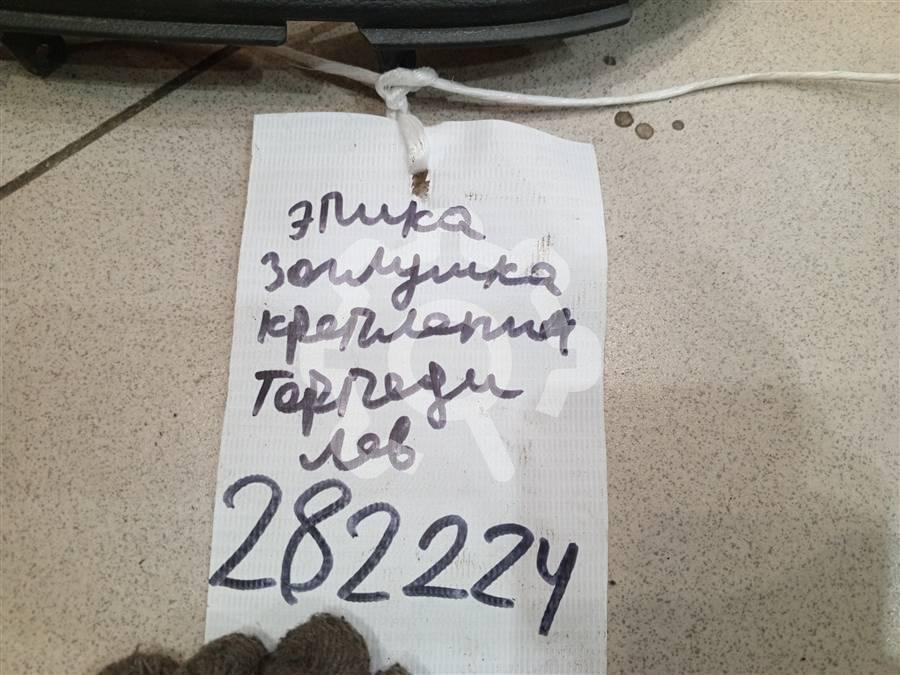 эпика
заглушка
крепления
торпеды
лев
282224